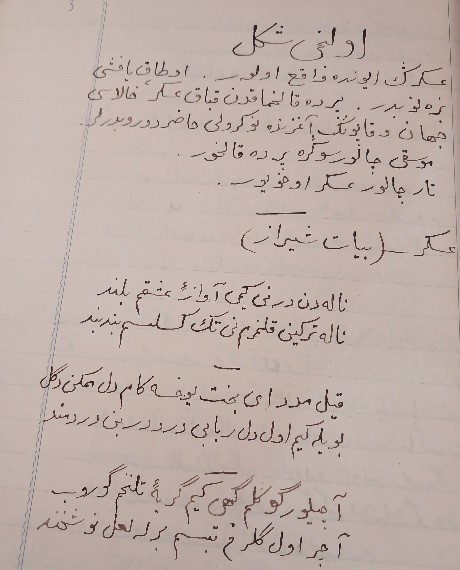 اولنجی شکل
عسکرڭ ایونده واقع اولور. اوطاق یاخشی
بزه نوبدر. پرده قالخماقدن قباق عسکر، خالاسی
جهان و قاپونڭ آغزنده نوکر ولی حاضر دوروبدرلر
موسقی چالور سوڭره پرده قالخور.
تار چالور عسکر اوخویور.
عسکر ـ (بیات شیراز)
ناله دن در نی کیمی آوازۀ عشقم بلند
ناله ترکینی قلنزم نی تک کسلسم بند بند
قیل مدد ای بخت یوخسه کام دل ممکن دگل
بویله کیم اول دل ربا بی درد در بن دردمند
آچیلور گوگلم گهی کیم گریۀ تلخم گوروب
آچر اول گلرخ تبسم برله لعل نوشخند